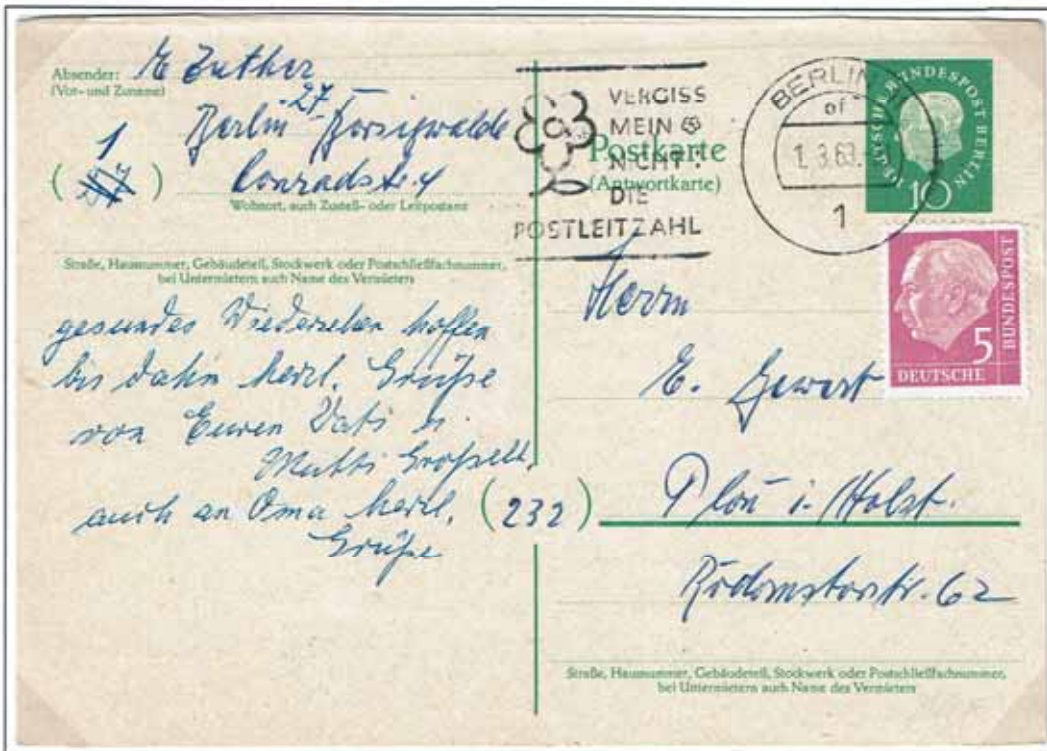 Absender:
(Vor- und Zuname)
E Zuther
Berlin 27 Borsigwalde
1
( )
Conradstr. 4
Wohnort, auch Zustell- oder Leitpostamt
Straße, Hausnummer, Gebäudeteil, Stockwerk oder Postschließfachnummer,
bei Untermietern auch Name des Vermieters
gesundes Wiedersehen hoffen
bis dahin herzl. Grüße
von Euren Vati u
Mutti Großelt.
auch an Oma herzl.
Grüße
VERGISS
MEIN
NICHT:
DIE
POSTLEITZAHL
Postkarte
(Antwortkarte)
BERLIN
1. 3. 63.
1
DEUTSCHE BUNDESPOST BERLIN
10
5
BUNDESPOST
DEUTSCHE
Herrn
E. Gewert
(232) Plön i. Holst.
62
Straße, Hausnummer, Gebäudeteil, Stockwerk oder Postschließfachnummer,
bei Untermietern auch Name des Vermieters